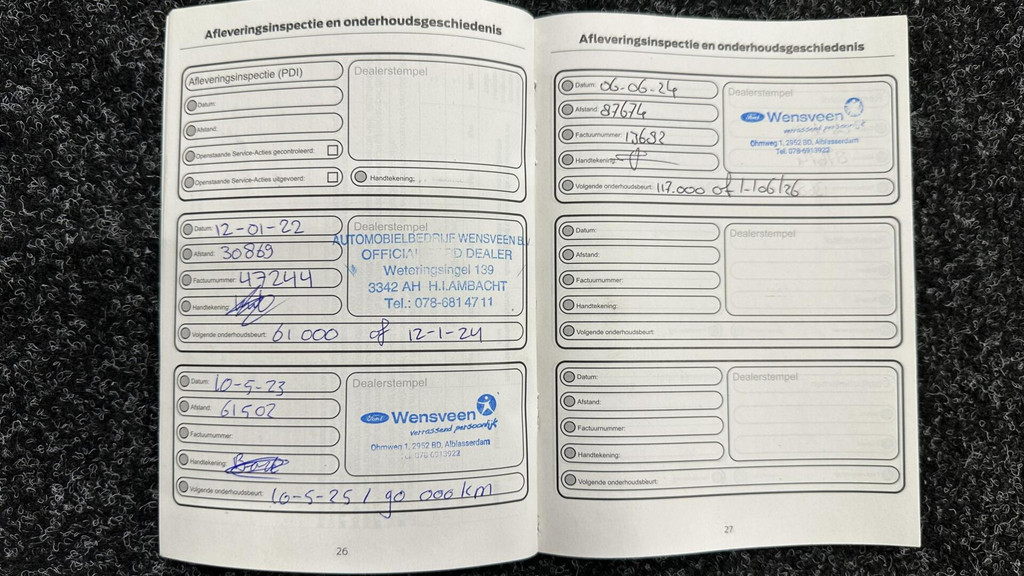 Afleveringsinspectie en onderhoudsgeschiedenis
Afleveringsinspectie (PDI)
Datum:
Afstand:
Openstaande Service-Acties gecontroleerd:
Openstaande Service-Acties uitgevoerd:
Dealerstempel
Handtekening:
Datum: 12-01-22
Afstand: 30869
Factuurnummer: 47244
Handtekening:
Dealerstempel
AUTOMOBIELBEDRIJF WENSVEEN B.V.
OFFICIAL FORD DEALER
Weteringsingel 139
3342 AH H.I.AMBACHT
Tel.: 078-681 47 11
Volgende onderhoudsbeurt: 61 000 of 12-1-24
Datum: 10-5-23
Afstand: 61502
Factuurnummer:
Handtekening:
Dealerstempel
Ford Wensveen
verrassend persoonlijk
Ohmweg 1, 2952 BD, Alblasserdam
Volgende onderhoudsbeurt: 10-5-25 / 90 000 km
26
Afleveringsinspectie en onderhoudsgeschiedenis
Datum: 06-06-24
Afstand: 87674
Factuurnummer: 13682
Handtekening:
Dealerstempel
Ford Wensveen
verrassend persoonlijk
Ohmweg 1, 2952 BD, Alblasserdam
Tel. 078-6913922
Volgende onderhoudsbeurt: 117.000 of
Datum:
Afstand:
Factuurnummer:
Handtekening:
Dealerstempel
Volgende onderhoudsbeurt:
Datum:
Afstand:
Factuurnummer:
Handtekening:
Dealerstempel
Volgende onderhoudsbeurt:
27